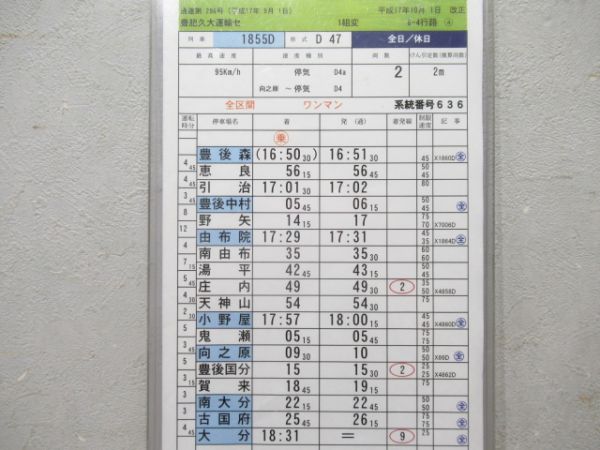 達運第 286号 (平成17年 9月 1日) 平成17年10月 1日 改正
豊肥久大運輸セ 1組変 a-4行路 ④
列車 1855D 様式 D 47 全日/休日
最高速度 速度種別 両数 けん引定数(換算両数)
95Km/h 停気 D4a 2 2m
向之原 ～ 停気 D4
全区間 ワンマン 系統番号636
運転時分 停車場名 着 発(通) 着発線 制限速度 記事
乗
豊後森 (16:50 30) 16:51 30 45 X1860D 全
4 45 恵良 56 15 56 45 50 45
4 引治 17:01 30 17:02 60
3 45 豊後中村 05 45 06 15 50 45 全
8 野矢 14 15 17 75 70 X7006D
12 由布院 17:29 17:31 45 35 X1864D 全
4 南由布 35 35 30 60 60
7 湯平 42 45 43 15 50 45
5 45 庄内 49 49 30 2 35 50 X4858D
4 30 天神山 54 54 30 75
2 30 小野屋 17:57 18:00 15 X4860D 全
5 鬼瀬 05 15 05 45
3 45 向之原 09 30 10 X86D 全
5 豊後国分 15 15 30 2 25 25 X4862D
3 15 賀来 18 45 19 15 45
3 南大分 22 15 22 45 全
3 古国府 25 45 26 15 全
4 45 大分 18:31 ＝ 9 25 全